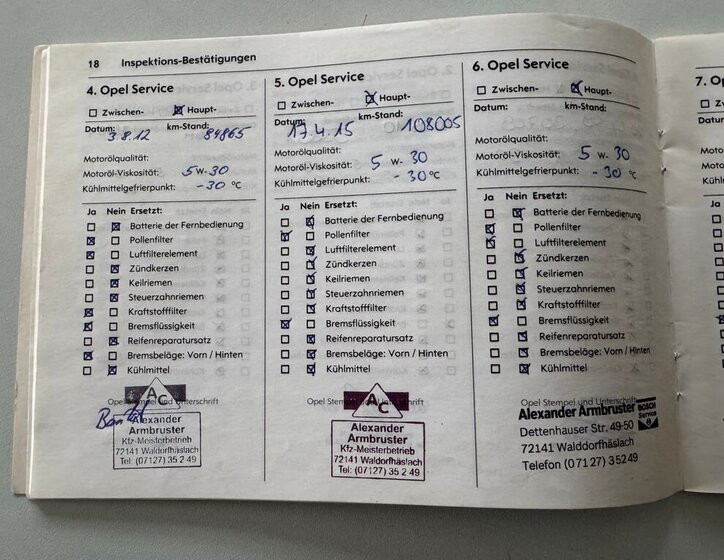 18 Inspektions-Bestätigungen
4. Opel Service
Zwischen- Haupt-
Datum: km-Stand:
3.8.12 84865
Motorölqualität:
Motoröl-Viskosität: 5W-30
Kühlmittelgefrierpunkt: -30 °C
Ja Nein Ersetzt:
Batterie der Fernbedienung
Pollenfilter
Luftfilterelement
Zündkerzen
Keilriemen
Steuerzahnriemen
Kraftstofffilter
Bremsflüssigkeit
Reifenreparatursatz
Bremsbeläge: Vorn / Hinten
Kühlmittel
Opel Stempel und Unterschrift
AC
Alexander
Armbruster
Kfz-Meisterbetrieb
72141 Walddorfhäslach
Tel: (07127) 35 2 49
5. Opel Service
Zwischen- Haupt-
Datum: km-Stand:
17.4.15 108005
Motorölqualität:
Motoröl-Viskosität: 5W-30
Kühlmittelgefrierpunkt: -30 °C
Ja Nein Ersetzt:
Batterie der Fernbedienung
Pollenfilter
Luftfilterelement
Zündkerzen
Keilriemen
Steuerzahnriemen
Kraftstofffilter
Bremsflüssigkeit
Reifenreparatursatz
Bremsbeläge: Vorn / Hinten
Kühlmittel
Opel Stempel und Unterschrift
AC
Alexander
Armbruster
Kfz-Meisterbetrieb
72141 Walddorfhäslach
Tel: (07127) 35 2 49
6. Opel Service
Zwischen- Haupt-
Datum: km-Stand:
Motorölqualität:
Motoröl-Viskosität: 5W-30
Kühlmittelgefrierpunkt: -30 °C
Ja Nein Ersetzt:
Batterie der Fernbedienung
Pollenfilter
Luftfilterelement
Zündkerzen
Keilriemen
Steuerzahnriemen
Kraftstofffilter
Bremsflüssigkeit
Reifenreparatursatz
Bremsbeläge: Vorn / Hinten
Kühlmittel
Opel Stempel und Unterschrift
Alexander Armbruster
BOSCH
Service
Dettenhauser Str. 49-50
72141 Walddorfhäslach
Telefon (07127) 35249